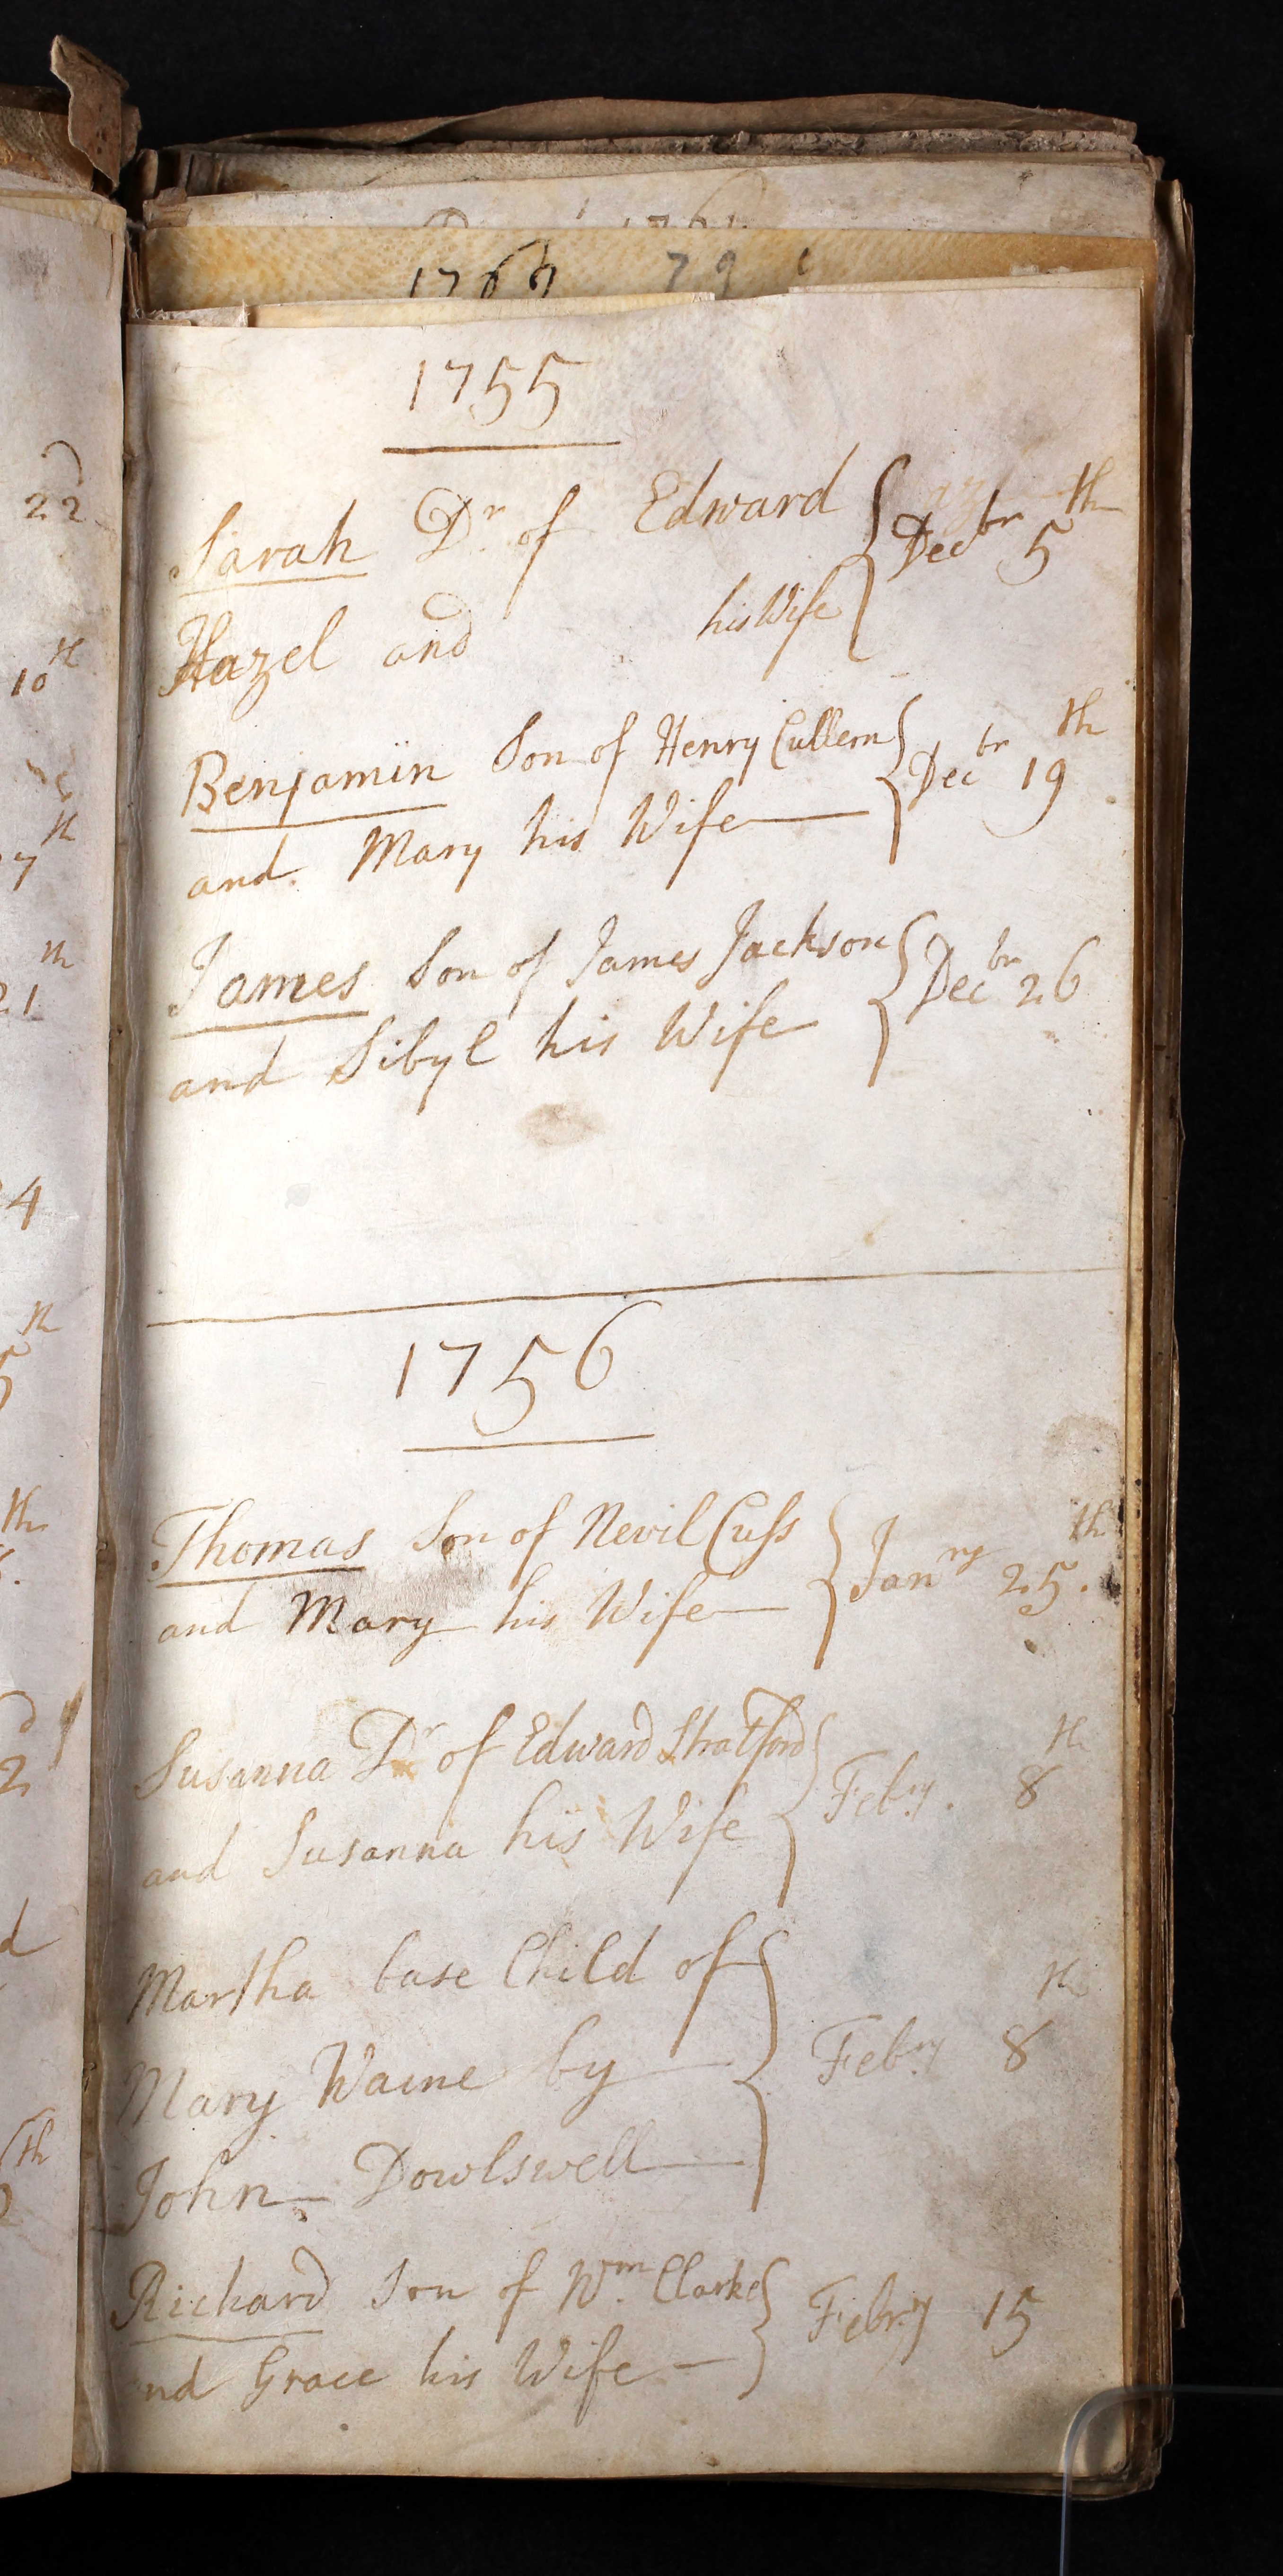 1762 79
1755
Sarah Dr of Edward
Hazel and his Wife
Decbr 5th
Benjamin Son of Henry Cullern
and Mary his Wife
Decbr 19th
James Son of James Jackson
and Sibyl his Wife
Decbr 26
1756
Thomas Son of Nevil Cuſs
and Mary his Wife
Janry 25th.
Susanna Dr of Edward Stratford
and Susanna his Wife
Febry. 8th
Martha base Child of
Mary Waine by
John Dowlswell
Febry 8th
Richard Son of Wm. Clarke
nd Grace his Wife
Febry 15
22
10th
7th
21th
4
5th
th
2
d
th